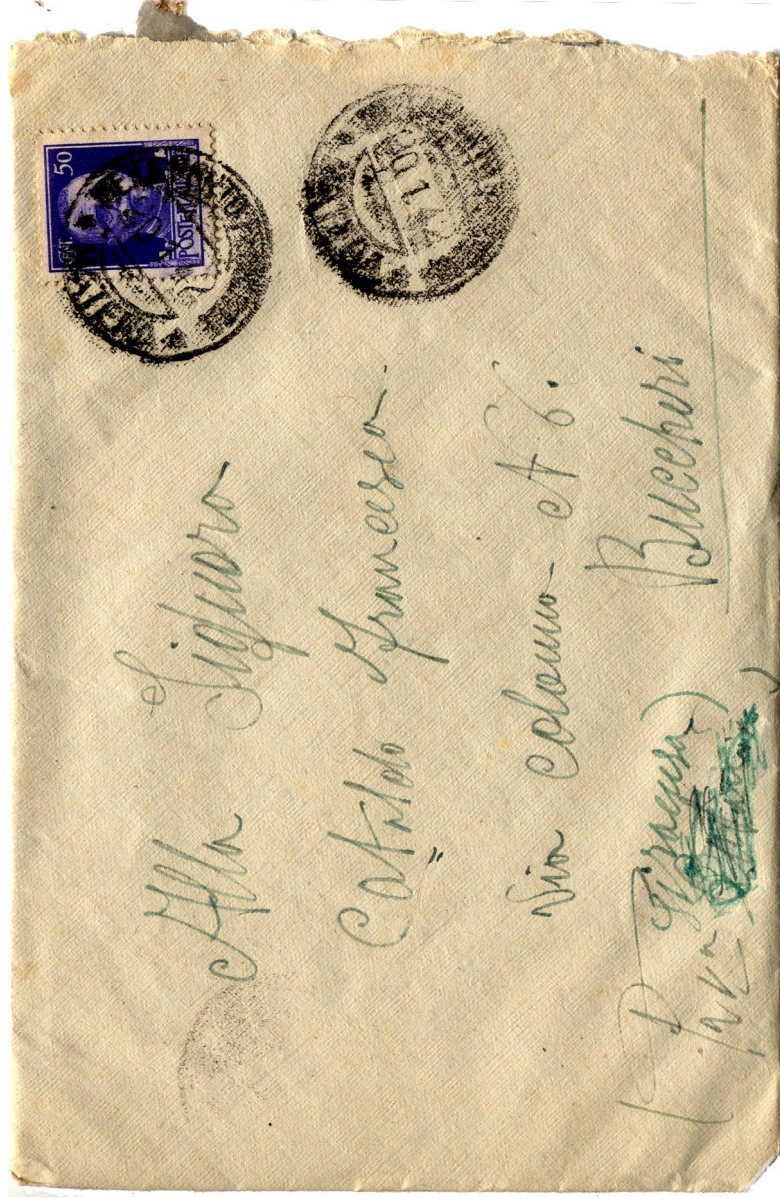 CENT. 50
POSTE ITALIANE
Alla Signora
Cataldo Francesca
Via Colomo N 6.
Buccheri
(Prva Siracusa)